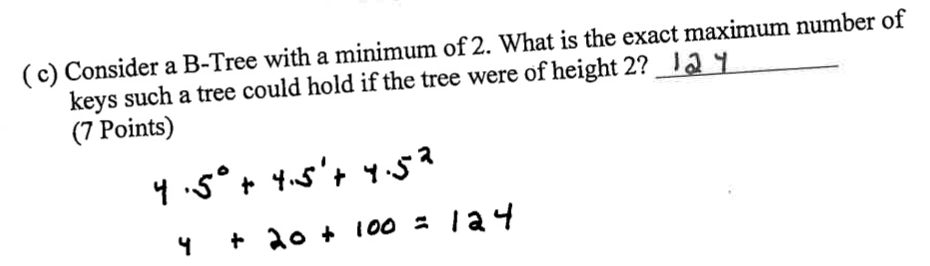 (c) Consider a B-Tree with a minimum of 2. What is the exact maximum number of
keys such a tree could hold if the tree were of height 2? 124
(7 Points)
4·5⁰ + 4·5¹ + 4·5²
4 + 20 + 100 = 124